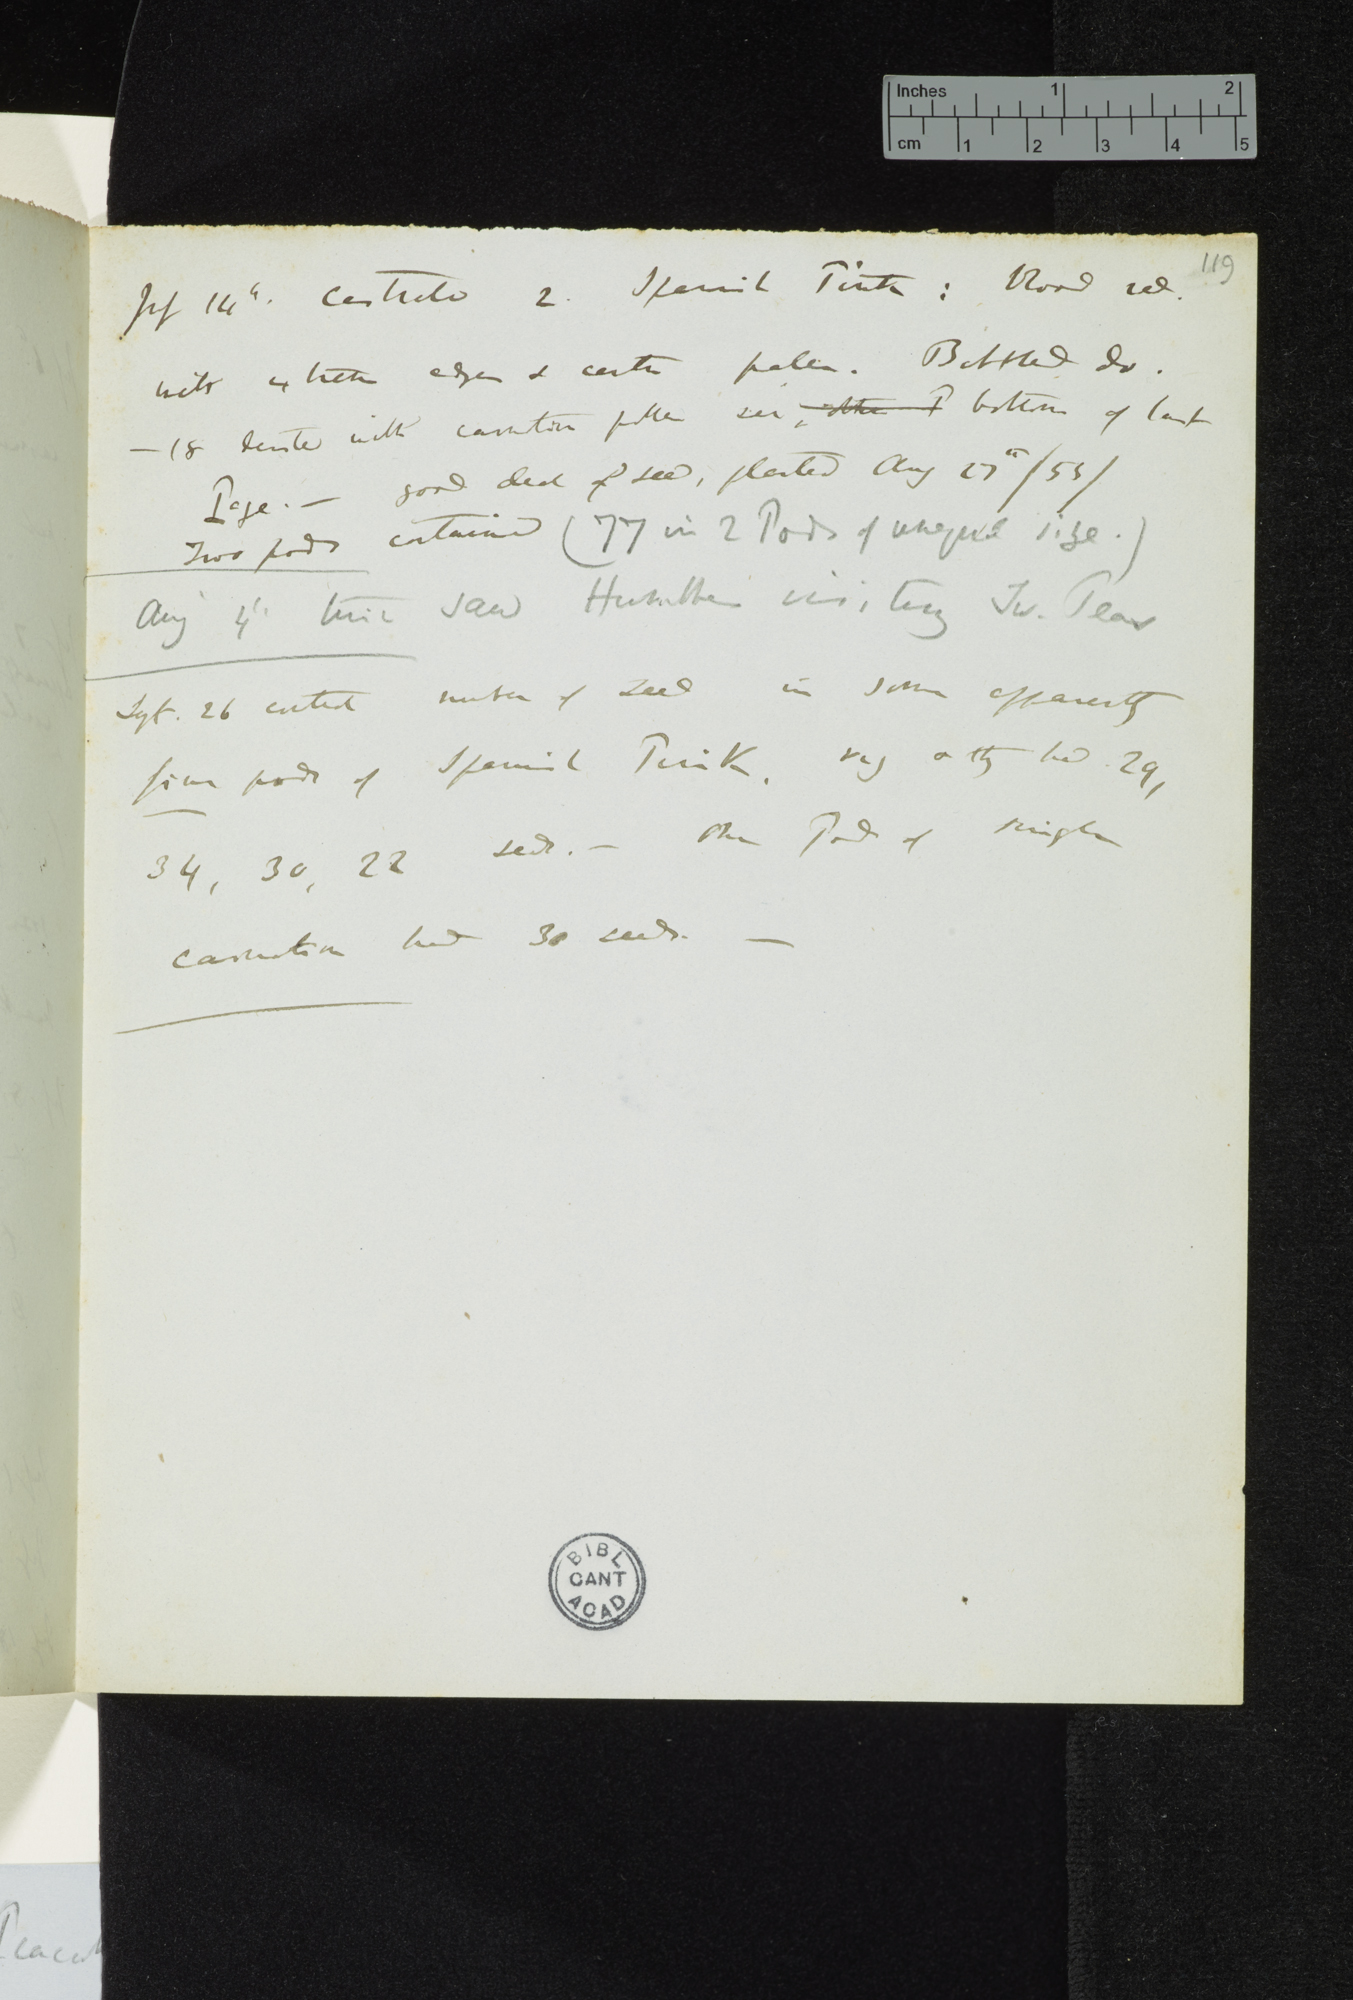 Inches 1 2
cm 1 2 3 4 5
119
July 14th. Castrated 2. Spanish Pinks: blood red.
with edges & centre paler. Bottled do.
— 18 dusted with carnation pollen see, bottom of last
Page. — good deal of seed, planted Aug 27th/55/
Two pods contained (77 in 2 Pods of unequal size.)
Aug 4th this saw Humbles visiting Sw. Peas
Sept. 26 counted number of seed in some apparently
fine pods of Spanish Pink. they had 29,
34, 30, 22 seeds. — One Pod of single
carnation had 30 seeds. —
BIBL
CANT
ACAD